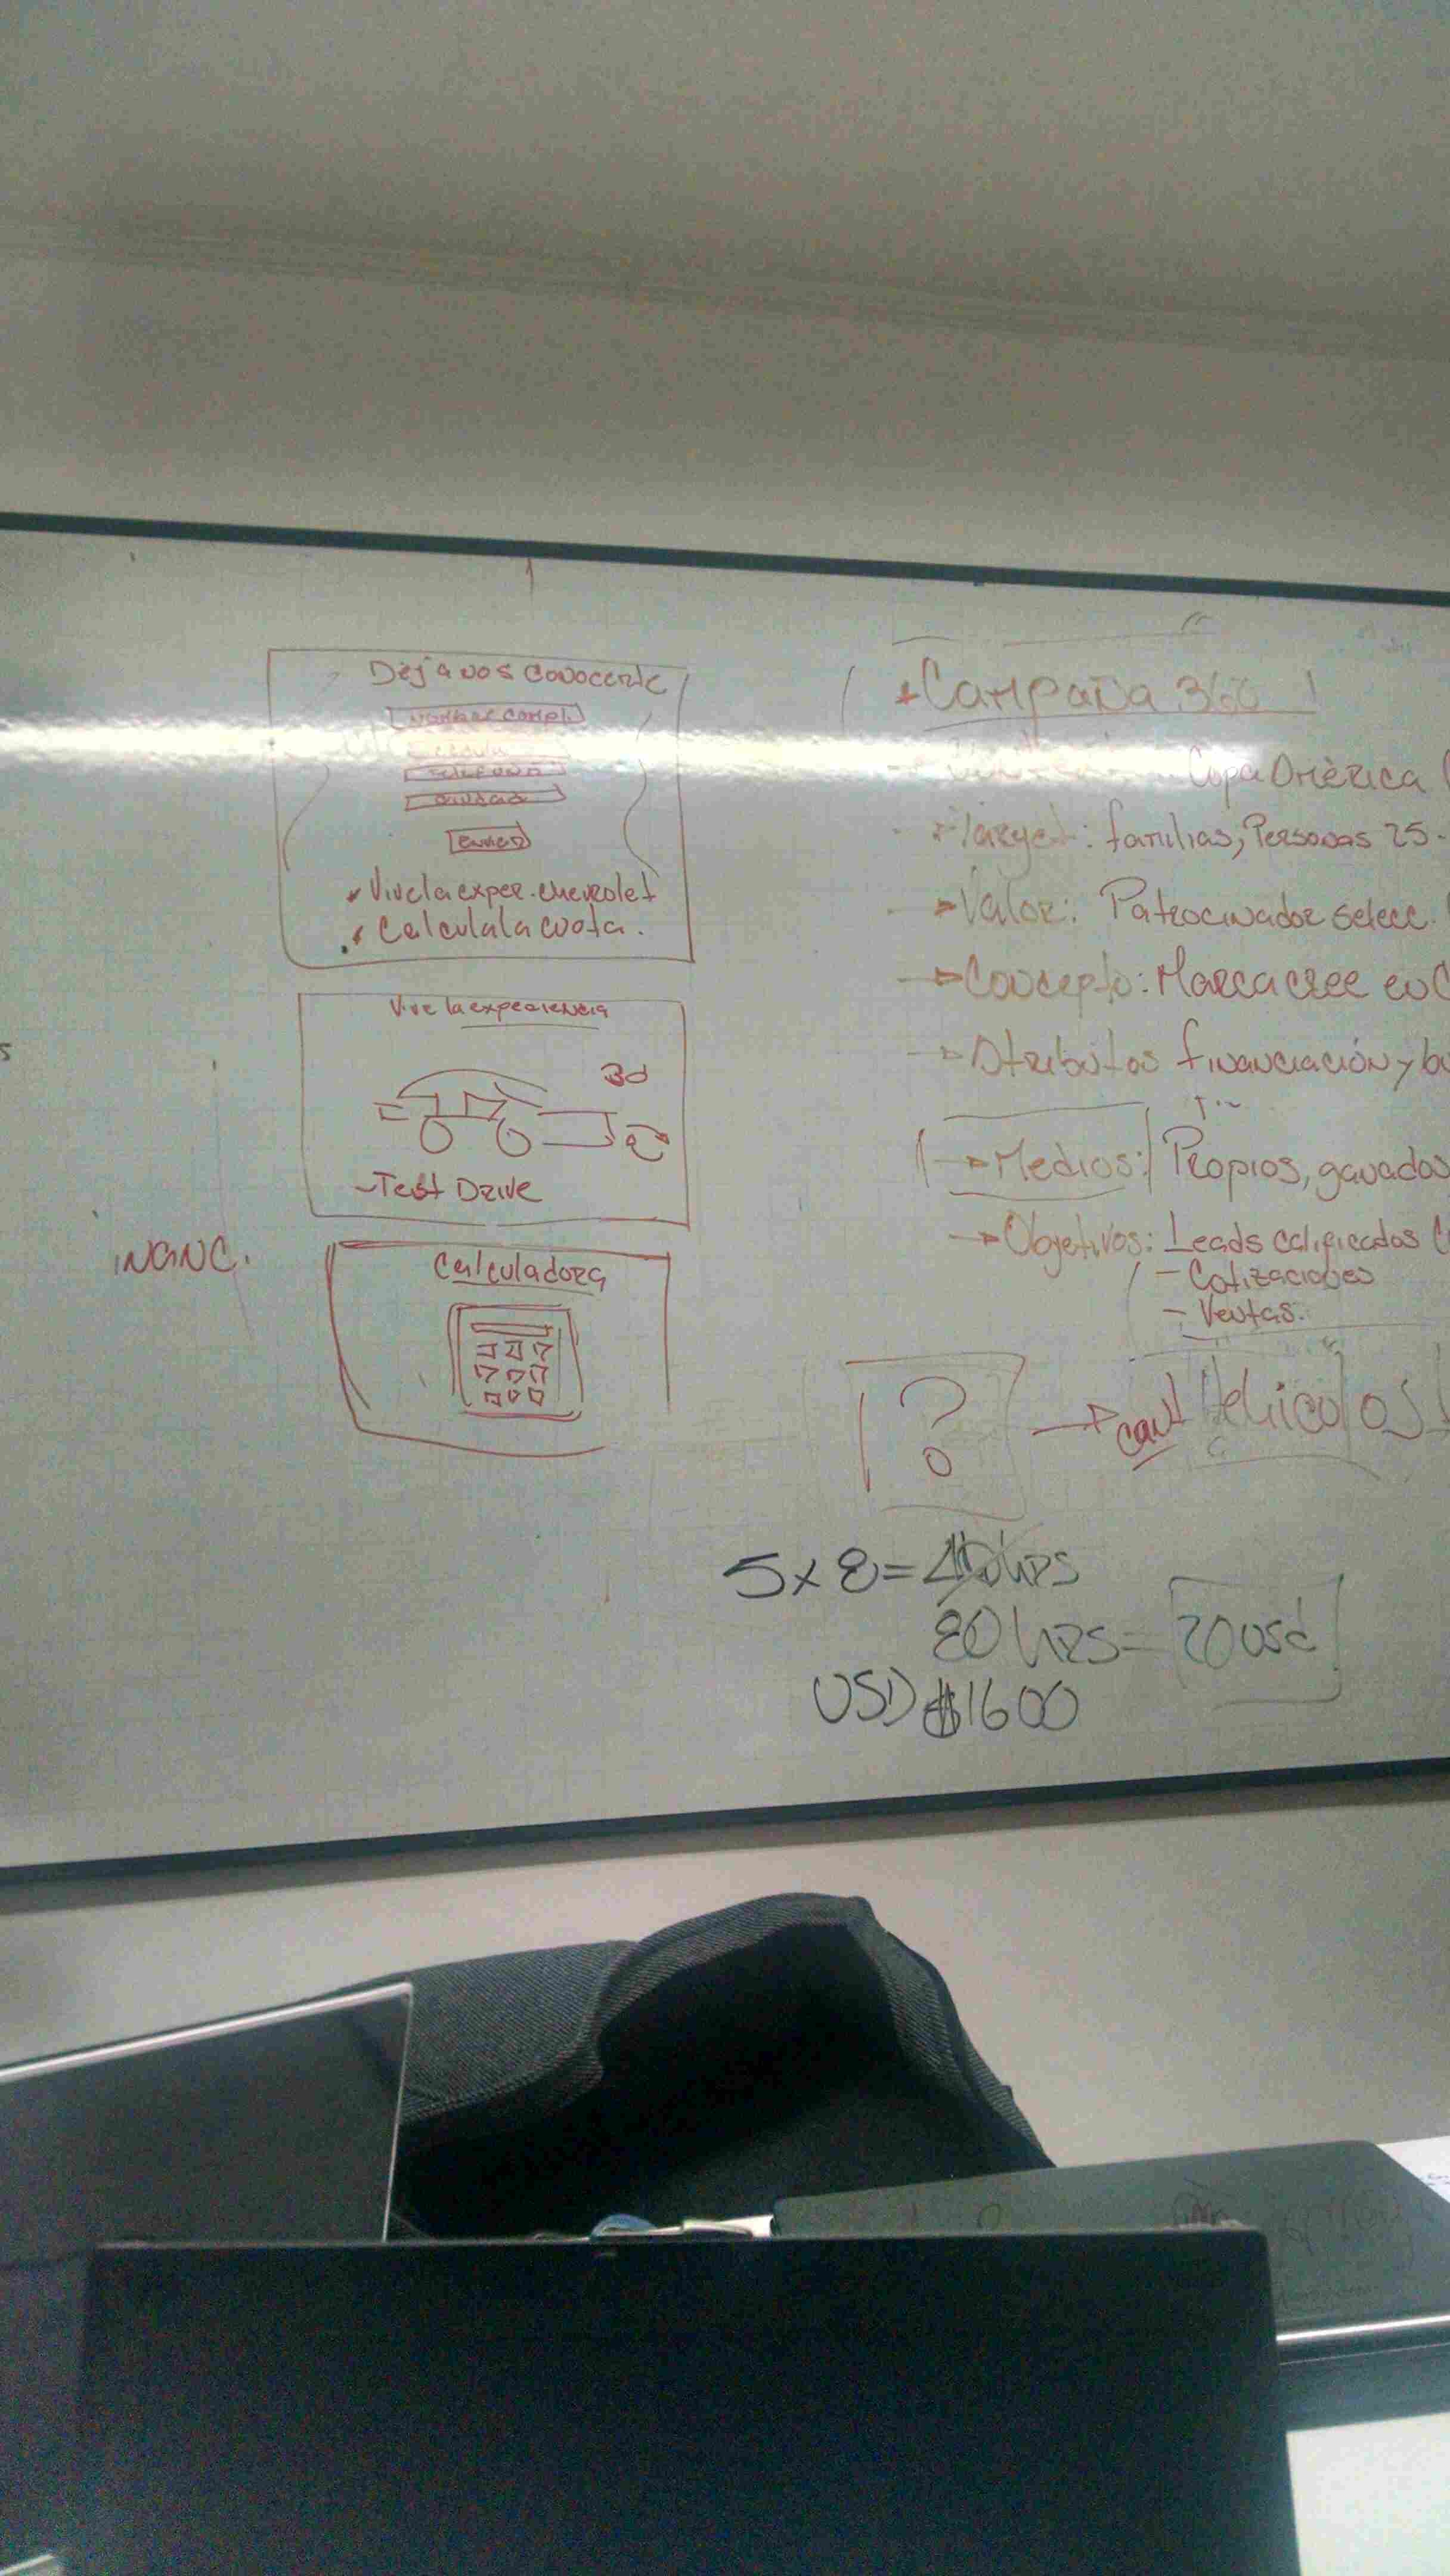 Dejanos conocerte
nombre compl.
cedula
telefono
ciudad
enviar
Vive la exper. chevrolet
Calcula la cuota.
Vive la experiencia
3d
- Test Drive
inanc.
Calculadora
+ Campaña 360
Copa America (
Target: familias, Personas 25-
→ Valor: Patrocinador selecc.
→ Concepto: Marca cree en C
→ Atributos financiación y bu
→ Medios: Propios, ganados
→ Objetivos: Leads calificados C
- Cotizaciones
- Ventas.
? → cant Vehiculos
5 x 8 = 40 hrs
80 hrs = 20 usd
USD $1600